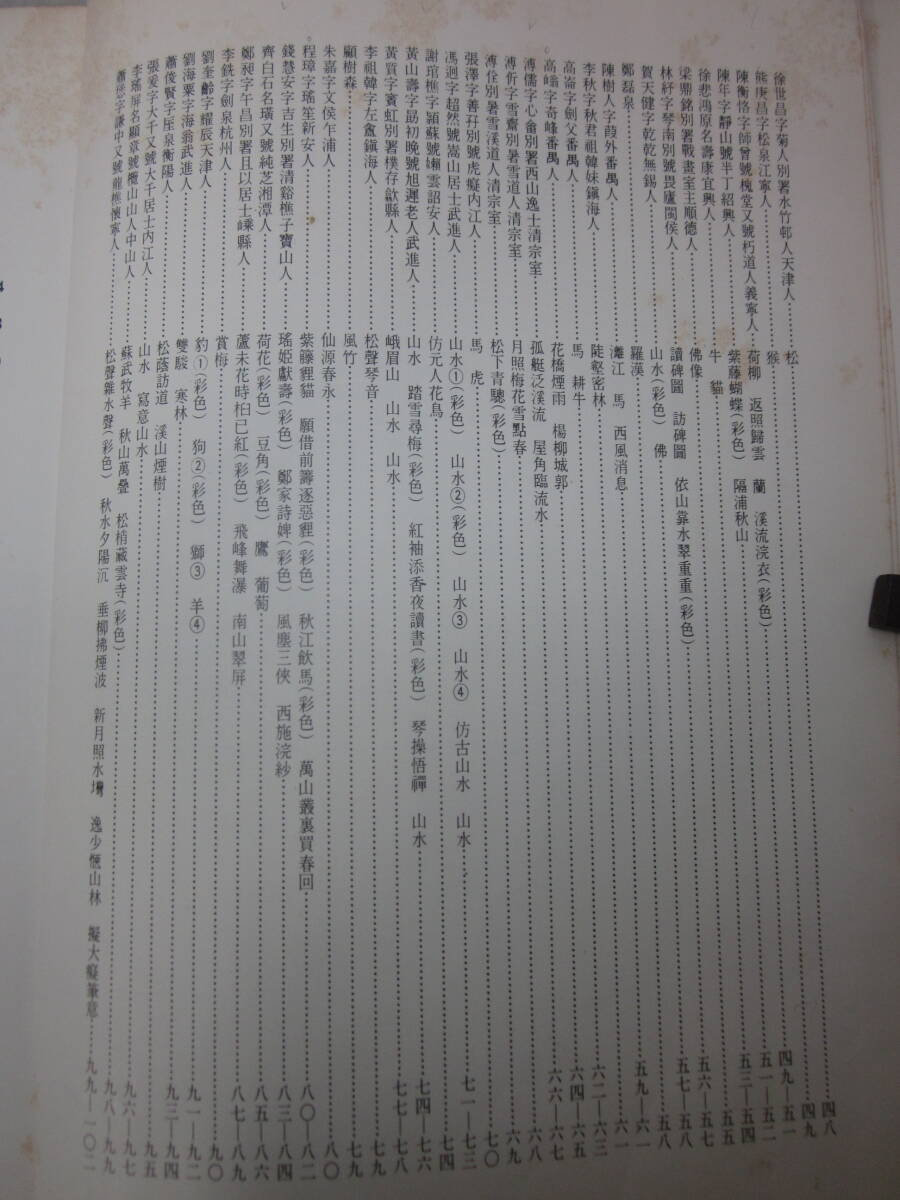 徐世昌字菊人別署水竹邨人天津人……松……四八
熊庚昌字松泉江寧人……猴……四九
陳衡恪字師曾號槐堂又號朽道人義寧人……荷柳 返照歸雲 蘭 溪流浣衣(彩色)……四九—五一
陳年字靜山號半丁紹興人……紫藤蝴蝶(彩色) 隔浦秋山……五一—五二
徐悲鴻原名壽康宜興人……牛 貓……五三—五四
梁鼎銘別署戰畫室主順德人……佛像……五五
林紓字琴南別號畏廬閩侯人……讀碑圖 訪碑圖 依山靠水翠重重(彩色)……五六—五七
賀天健字乾乾無錫人……山水(彩色) 佛……五七—五八
鄭磊泉……羅漢……五八
陳樹人字葭外番禺人……灕江 馬 西風消息……五九—六一
李秋字秋君祖韓妹鎭海人……陡壑密林……六一
高崙字劍父番禺人……馬 耕牛……六二—六三
高嵡字奇峰番禺人……花橋煙雨 楊柳城郭……六四—六五
溥儒字心畬別署西山逸士清宗室……孤艇泛溪流 屋角臨流水……六六—六七
溥伒字雪齋別署雪道人清宗室……月照梅花雪點春……六八
溥佺別署雪溪道人清宗室……松下青驄(彩色)……六九
張澤字善孖別號虎癡內江人……馬 虎……七〇
馮迥字超然號嵩山居士武進人……山水①(彩色) 山水②(彩色) 山水③ 山水④ 仿古山水 山水……七一—七三
謝琯樵字穎蘇號嬾雲詔安人……仿元人花鳥……七四
黃山壽字勗初晚號旭遲老人武進人……山水 踏雪尋梅(彩色) 紅袖添香夜讀書(彩色) 琴操悟禪 山水……七四—七六
黃質字賓虹別署樸存歙縣人……峨眉山 山水 山水……七七—七八
李祖韓字左盦鎭海人……松聲琴音……七九
顧樹森……風竹……七九
朱嘉字文侯乍浦人……仙源春永……八〇
程璋字瑤笙新安人……紫藤貍貓 願借前籌逐惡貍(彩色) 秋江飮馬(彩色) 萬山叢裏買春回……八〇—八二
錢慧安字吉生別署清谿樵子寶山人……瑤姬獻壽(彩色) 鄭家詩婢(彩色) 風塵三俠 西施浣紗……八三—八四
齊白石名璜又號純芝湘潭人……荷花(彩色) 豆角(彩色) 鷹 葡萄……八五—八六
鄭昶字午昌別署且以居士嵊縣人……蘆未花時桕已紅(彩色) 飛峰舞瀑 南山翠屏……八七—八九
李銑字劍泉杭州人……賞梅……九〇
劉奎齡字耀辰天津人……豹①(彩色) 狗②(彩色) 獅③ 羊④……九一—九二
劉海粟字海翁武進人……雙駿 寒林……九三—九四
蕭俊賢字厔泉衡陽人……松蔭訪道 溪山煙樹……九五
張爰字大千又號大千居士內江人……山水 寫意山水……九六—九七
李瑤屏名顯章號欖山山人中山人……蘇武牧羊 秋山萬疊 松梢藏雲寺(彩色)……九八—九九
蕭愻字謙中又號龍樵懷寧人……松聲雜水聲(彩色) 秋水夕陽沉 垂柳拂煙波 新月照水墻 逸少愜山林 擬大癡筆意……九九—一〇二